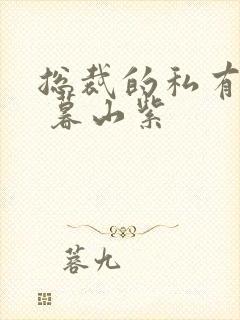 总裁的私有
暮山紫
蓉九